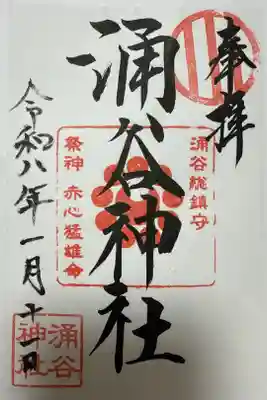 奉拝
涌谷総鎮守
涌谷神社
祭神 赤心猛雄命
令和八年一月十一日
涌谷
神社